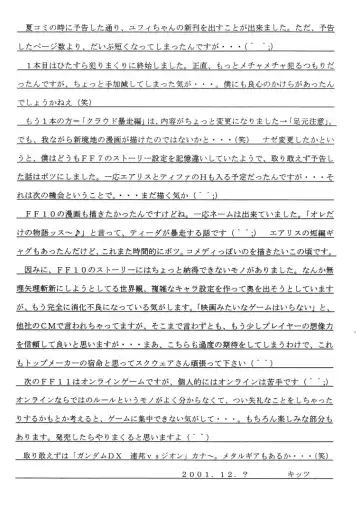 夏コミの時に予告した通り、ユフィちゃんの新刊を出すことが出来ました。ただ、予告
したページ数より、だいぶ短くなってしまったんですが・・・(＾＾;)
１本目はひたすら犯りまくりに終始しました。正直、もっとメチャメチャ犯るつもりだ
ったんですが、ちょっと手加減してしまった気が・・・。僕にも良心のかけらがあったん
でしょうかねえ（笑）
もう１本の方＝「クラウド暴走編」は、内容がちょっと変更になりました→「足元注意」。
でも、我ながら新境地の漫画が描けたのではないかと・・・(笑) ナゼ変更したかとい
うと、僕はどうもＦＦ７のストーリー設定を記憶違いしていたようで、取り敢えず予告し
た話はボツにしました。一応エアリスとティファのＨも入る予定だったんですが・・・そ
れは次の機会ということで。・・・まだ描く気か(＾＾;)
ＦＦ１０の漫画も描きたかったんですけどね。一応ネームは出来ていました。「オレだ
けの物語ッス～♪」と言って、ティーダが暴走する話です(＾＾;) エアリスの短編ギ
ャグもあったんだけど、これまた時間的にボツ。コメディっぽいのを描きたいこの頃です。
因みに、ＦＦ１０のストーリーにはちょっと納得できないモノがありました。なんか無
理矢理斬新にしようとしてる世界観、複雑なキャラ設定を作って奥を出そうとしています
が、もう完全に消化不良になっている気がします。「映画みたいなゲームはいらない」と、
他社のＣＭで言われちゃってますが、そこまで言わずとも、もう少しプレイヤーの想像力
を信頼して良いと思いますが・・・まあ、こちらも過度の期待をしてしまうわけで、これ
もトップメーカーの宿命と思ってスクウェアさん頑張って下さい(＾＾)
次のＦＦ１１はオンラインゲームですが、個人的にはオンラインは苦手です(＾＾;)
オンラインならではのルールというモノがよく分からなくて、つい失礼なことをしちゃった
りするかもとか考えると、ゲームに集中できない気がして・・・。もちろん楽しみな部分も
あります。発売したらやりまくると思いますよ(＾＾)
取り敢えずは「ガンダムＤＸ 連邦ｖｓジオン」カナ～。メタルギアもあるか・・・(笑)
２００１．１２．？ キッツ